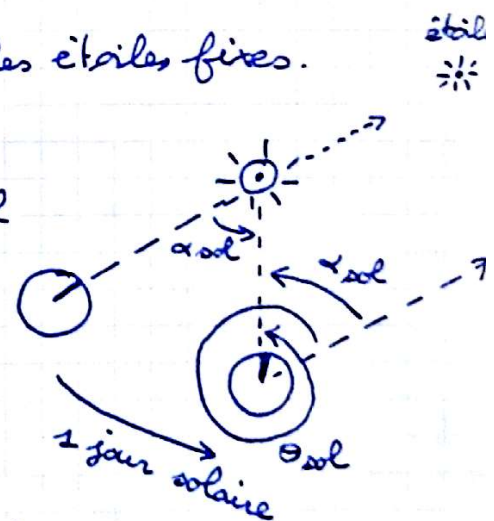 les étoiles fixes.
étoile
α sol
α sol
θ sol
1 jour
solaire